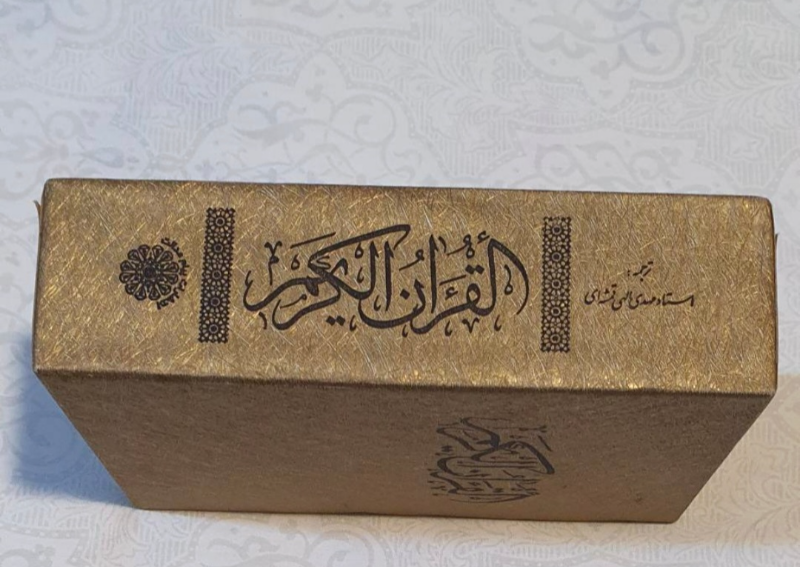 القرآن الکریم
ترجمه:
استاد مهدی الهی قمشه‌ای